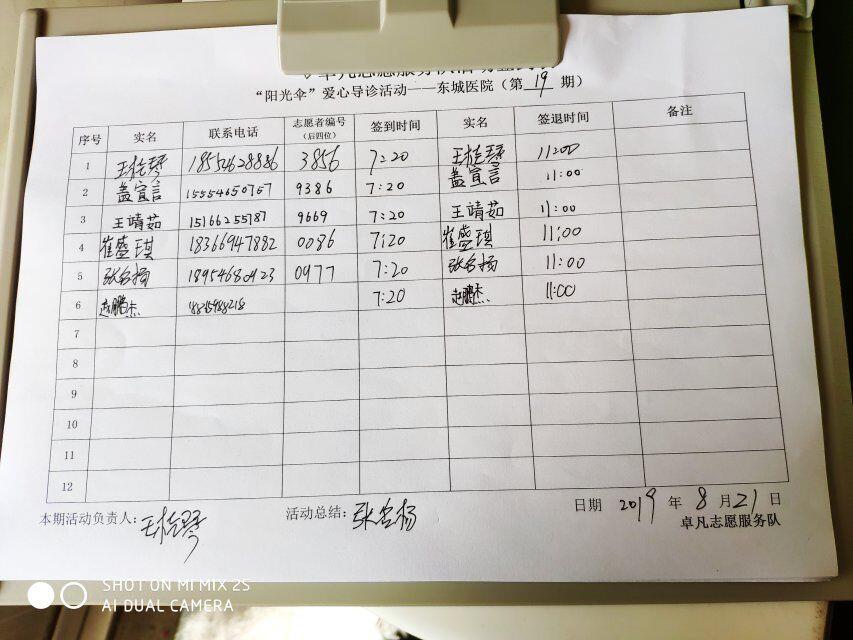 卓凡志愿服务队活动签到表
“阳光伞”爱心导诊活动——东城医院（第 19 期）
序号 实名 联系电话 志愿者编号（后四位） 签到时间 实名 签退时间 备注
1 王桂琴 18554628886 3856 7:20 王桂琴 11:00
2 盖宣言 15554650757 9386 7:20 盖宣言 11:00
3 王靖茹 15166255787 9669 7:20 王靖茹 11:00
4 崔盛琪 18366947882 0086 7:20 崔盛琪 11:00
5 张名扬 0977 7:20 张名扬 11:00
6 赵鹏杰 7:20 赵鹏杰 11:00
7
8
9
10
11
12
本期活动负责人：王桂琴 活动总结：张名扬 日期 2019 年 8 月 21 日
卓凡志愿服务队
SHOT ON MI MIX 2S
AI DUAL CAMERA